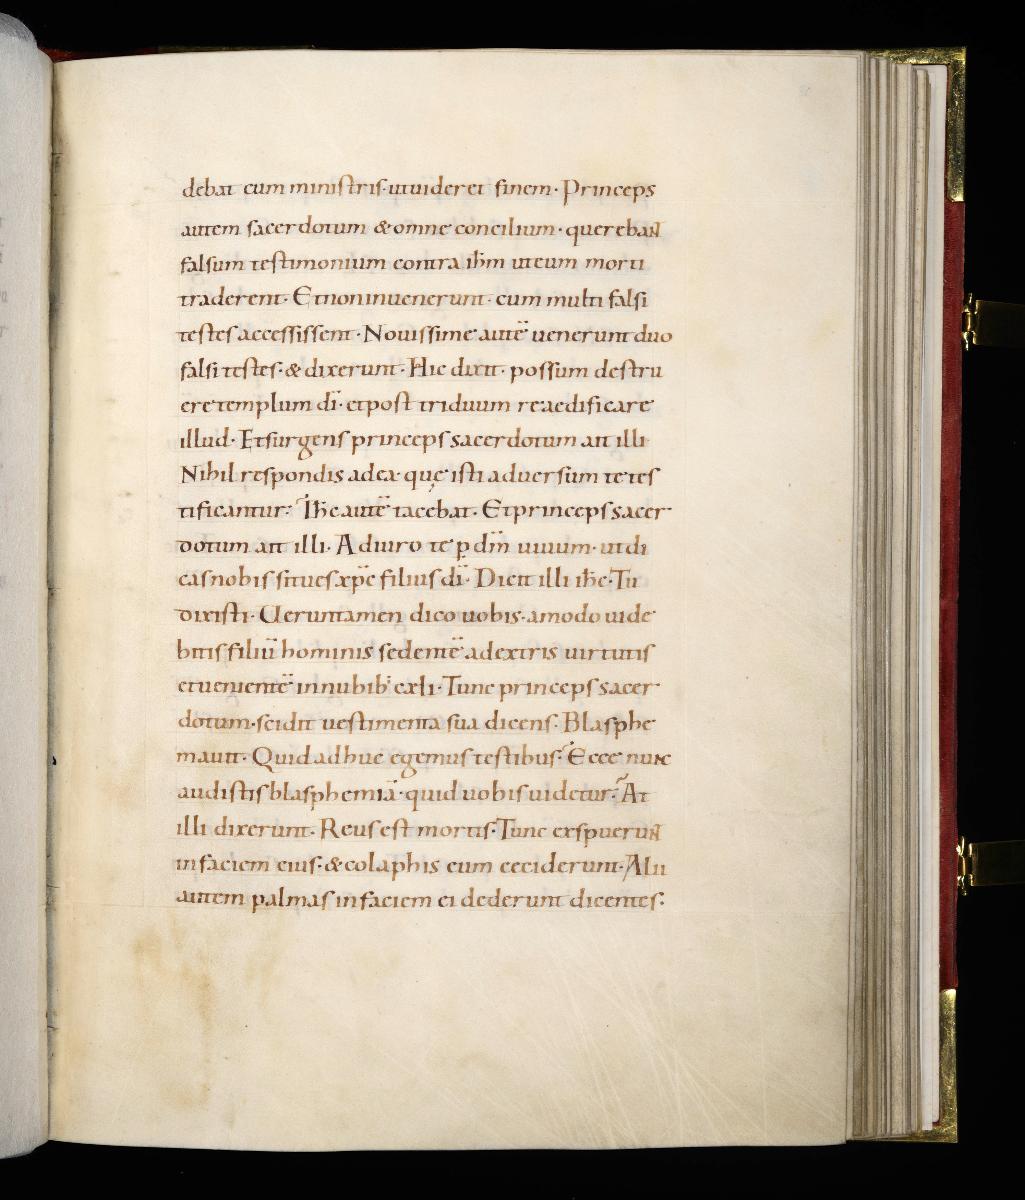 debat cum ministris· utuideret finem· Princeps
autem sacerdotum & omne concilium· querebant
falsum testimonium contra ihm ut eum morti
traderent· Et non inuenerunt· cum multi falsi
testes accessissent· Nouissime autē uenerunt duo
falsi testes· & dixerunt· Hic dixit· possum destru
ere templum dī· et post triduum reaedificare
illud· Et surgens princeps sacerdotum ait illi
Nihil respondis ad ea· quę isti aduersum te tes
tificantur· Ihc autē tacebat· Et princeps sacer
dotum ait illi· Adiuro te p dm̄ uiuum· ut di
cas nobis si tu es xpc filius dī· Dicit illi ihc· Tu
dixisti· Ueruntamen dico uobis· amodo uide
bitis filiū hominis sedentē ad extris uirtutis
et uenientē in nubib' cęli· Tunc princeps sacer
dotum· scidit uestimenta sua dicens· Blasphe
mauit· Quid adhuc egemus testibus· Ecce nunc
audistis blasphemiā· quid uobis uidetur· At
illi dixerunt· Reus est mortis· Tunc exspuerunt
in faciem eius· & colaphis eum ceciderunt· Alii
autem palmas in faciem ei dederunt dicentes·